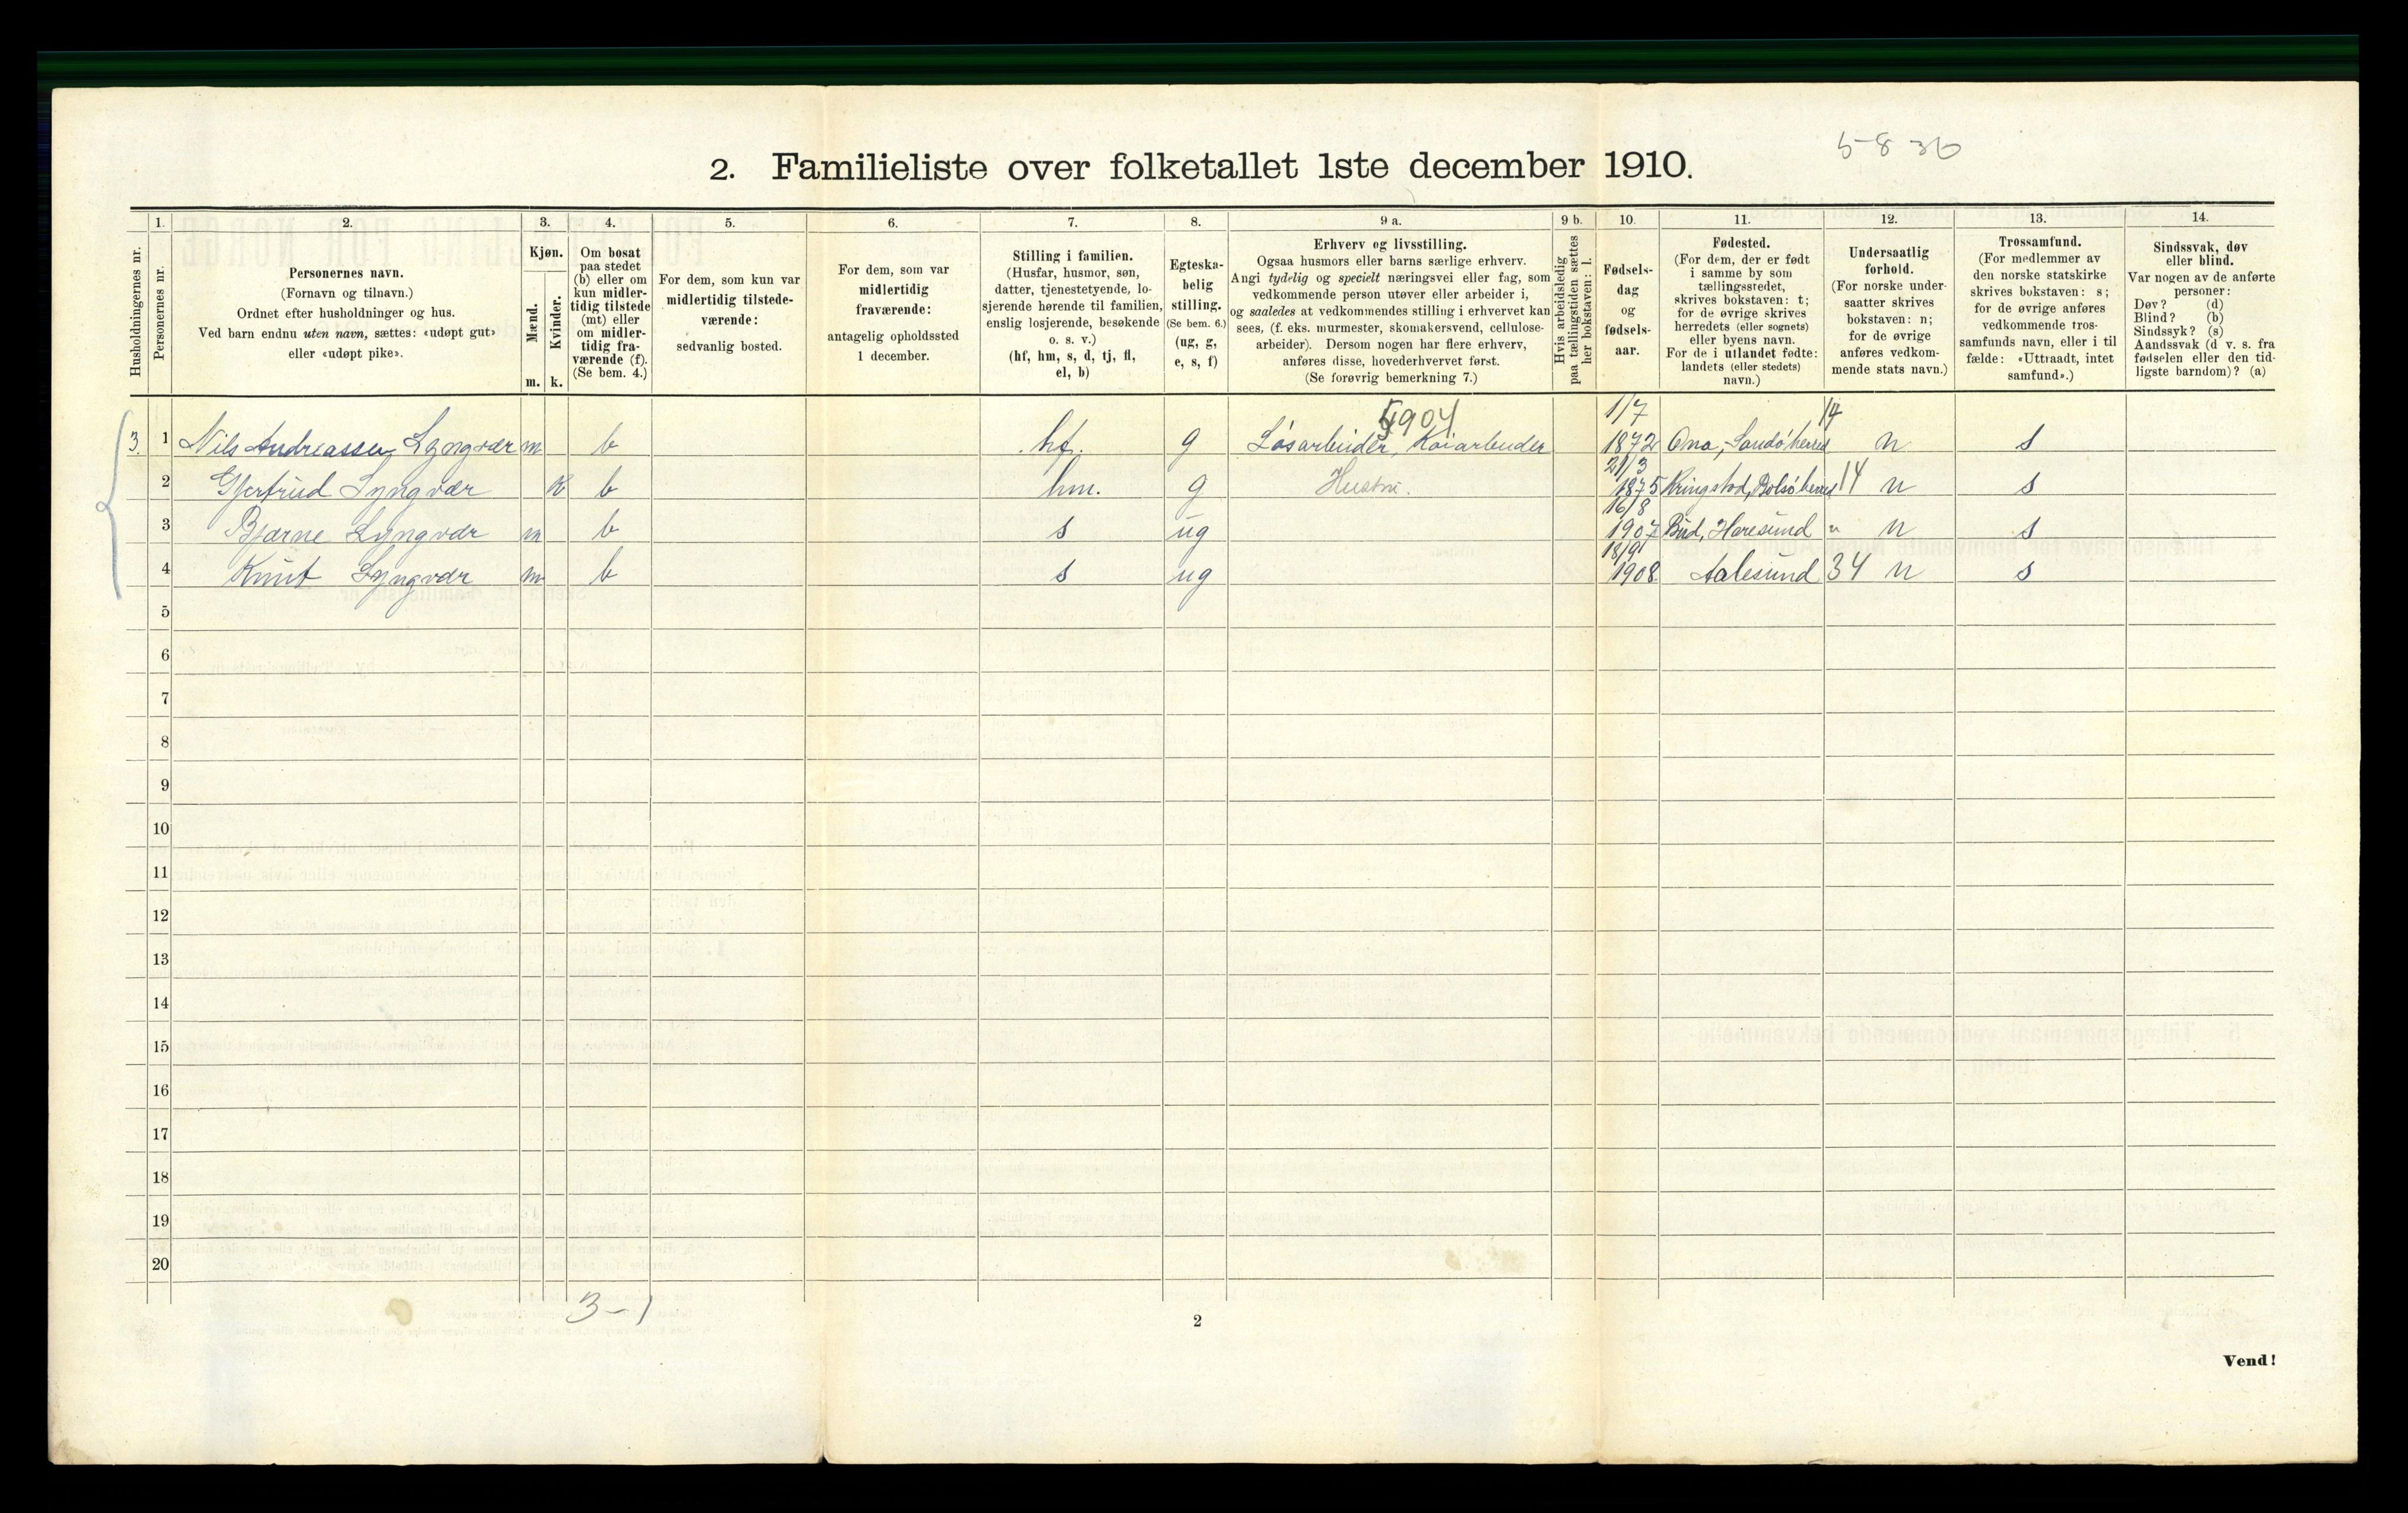 5-8 36
2. Familieliste over folketallet 1ste december 1910.
Husholdningernes nr.
1.
Personernes nr.
2.
Personernes navn.
(Fornavn og tilnavn.)
Ordnet efter husholdninger og hus.
Ved barn endnu uten navn, sættes: «udøpt gut»
eller «udøpt pike».
3.
Kjøn.
Mænd.
Kvinder.
m. k.
4.
Om bosat
paa stedet
(b) eller om
kun midler-
tidig tilstede
(mt) eller
om midler-
tidig fra-
værende (f).
(Se bem. 4.)
5.
For dem, som kun var
midlertidig tilstede-
værende:
sedvanlig bosted.
6.
For dem, som var
midlertidig
fraværende:
antagelig opholdssted
1 december.
7.
Stilling i familien.
(Husfar, husmor, søn,
datter, tjenestetyende, lo-
sjerende hørende til familien,
enslig losjerende, besøkende
o. s. v.)
(hf, hm, s, d, tj, fl,
el, b)
8.
Egteska-
belig
stilling.
(Se bem. 6.)
(ug, g,
e, s, f)
9 a.
Erhverv og livsstilling.
Ogsaa husmors eller barns særlige erhverv.
Angi tydelig og specielt næringsvei eller fag, som
vedkommende person utøver eller arbeider i,
og saaledes at vedkommendes stilling i erhvervet kan
sees, (f. eks. murmester, skomakersvend, cellulose-
arbeider). Dersom nogen har flere erhverv,
anføres disse, hovederhvervet først.
(Se forøvrig bemerkning 7.)
9 b.
Hvis arbeidsledig
paa tællingstiden sættes
her bokstaven: l.
10.
Fødsels-
dag
og
fødsels-
aar.
11.
Fødested.
(For dem, der er født
i samme by som
tællingsstedet,
skrives bokstaven: t;
for de øvrige skrives
herredets (eller sognets)
eller byens navn.
For de i utlandet fødte:
landets (eller stedets)
navn.)
12.
Undersaatlig
forhold.
(For norske under-
saatter skrives
bokstaven: n;
for de øvrige
anføres vedkom-
mende stats navn.)
13.
Trossamfund.
(For medlemmer av
den norske statskirke
skrives bokstaven: s;
for de øvrige anføres
vedkommende tros-
samfunds navn, eller i til
fælde: «Uttraadt, intet
samfund».)
14.
Sindssvak, døv
eller blind.
Var nogen av de anførte
personer:
Døv? (d)
Blind? (b)
Sindssyk? (s)
Aandssvak (d v. s. fra
fødselen eller den tid-
ligste barndom)? (a)
5904 1/7 14
3. 1 Nils Andreassen Lyngvær m b hf. g Løsarbeider, Kaiarbeider 1872 Ona, Sandø herred n s
21/3
2 Gjertrud Lyngvær k b hm. g Hustru. 1875 Kringstad, Bolsø herred 14 n s
16/8
3 Bjarne Lyngvær m b s ug 1907 Bud, Haresund " n s
18/9
4 Knut Lyngvær m b s ug 1908 Aalesund 34 n s
5
6
7
8
9
10
11
12
13
14
15
16
17
18
19
20
3-1
2
Vend!